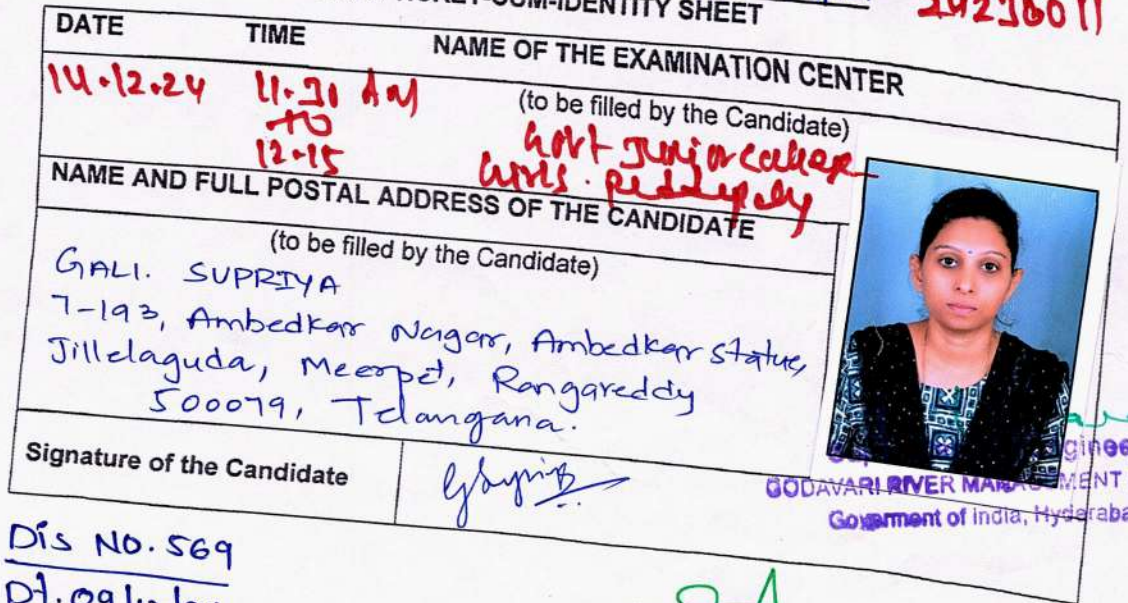 -IDENTITY SHEET
DATE TIME NAME OF THE EXAMINATION CENTER
(to be filled by the Candidate)
14.12.24 11.30 AM
TO
12.15
Govt Junior College
Girls.
NAME AND FULL POSTAL ADDRESS OF THE CANDIDATE
(to be filled by the Candidate)
GALI. SUPRIYA
7-193, Ambedkar Nagar, Ambedkar Statue,
Jillelaguda, Meerpet, Rangareddy
500079, Telangana.
Signature of the Candidate
GODAVARI RIVER MANAGEMENT
Goverment of india, Hyderaba
Dis NO. 569